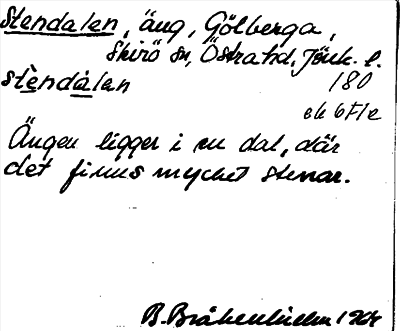 Stendalen, äng, Gölberga,
Skirö sn, Östra hd, Jönk. l.
stèndàlen 180
ek 6F1e
Ängen ligger i en dal, där
det finns mycket stenar.
B. Bråkenhielm 1964